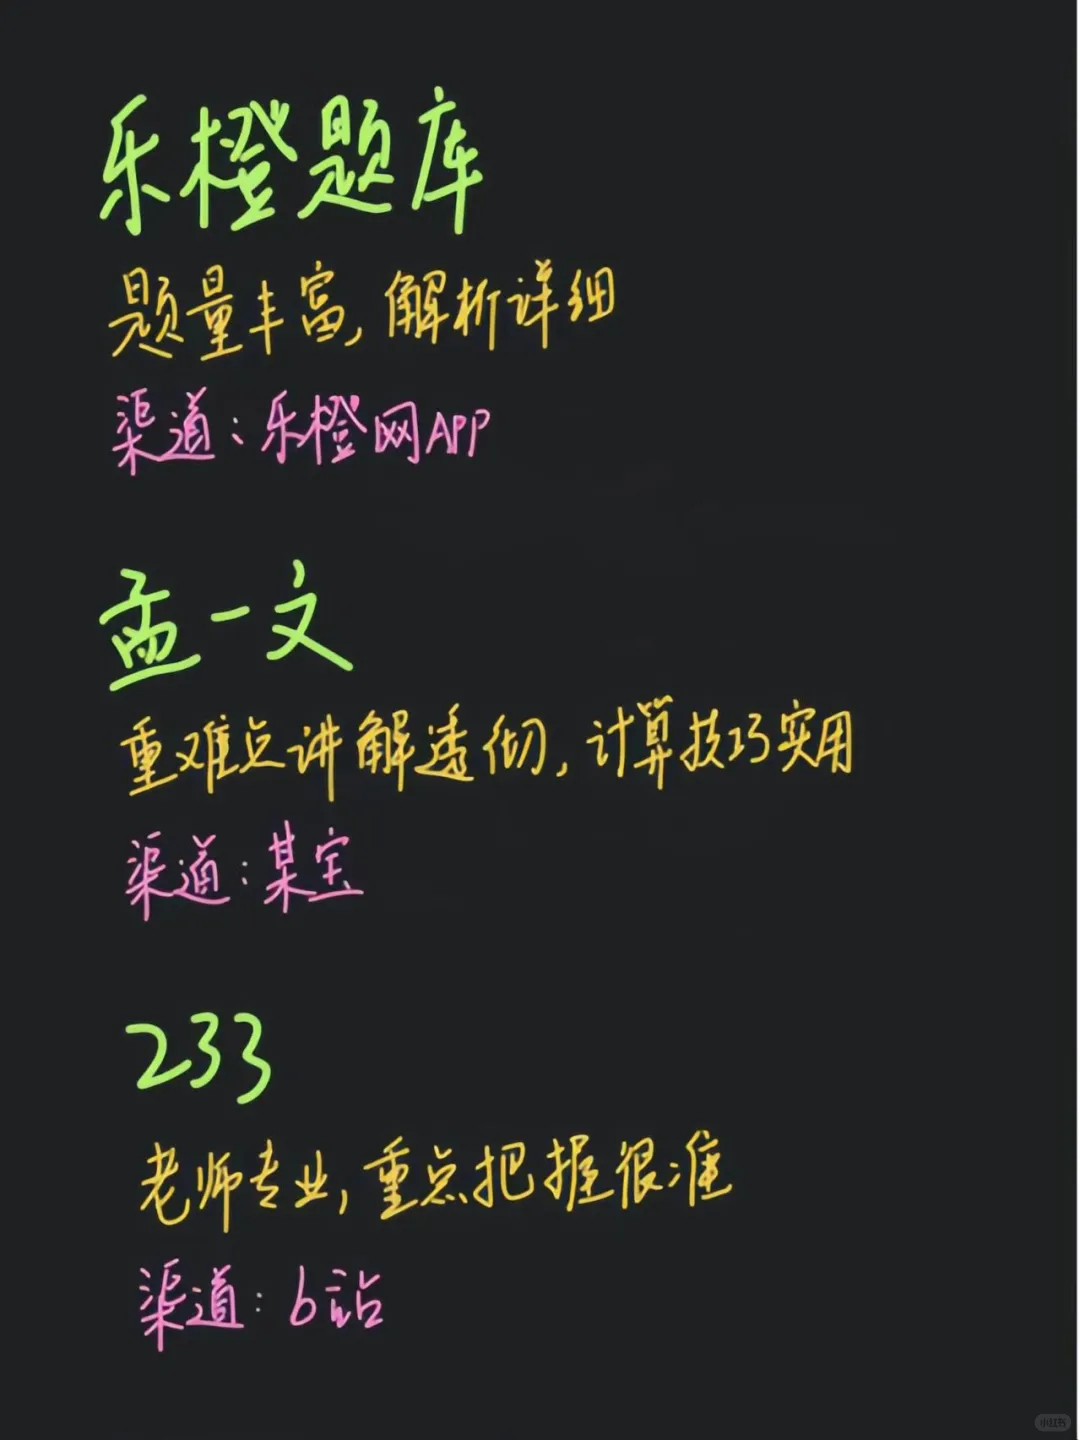 乐橙题库
题量丰富,解析详细
渠道:乐橙网APP
孟一文
重难点讲解透彻,计算技巧实用
渠道:某宝
233
老师专业,重点把握很准
渠道:b站
小红书